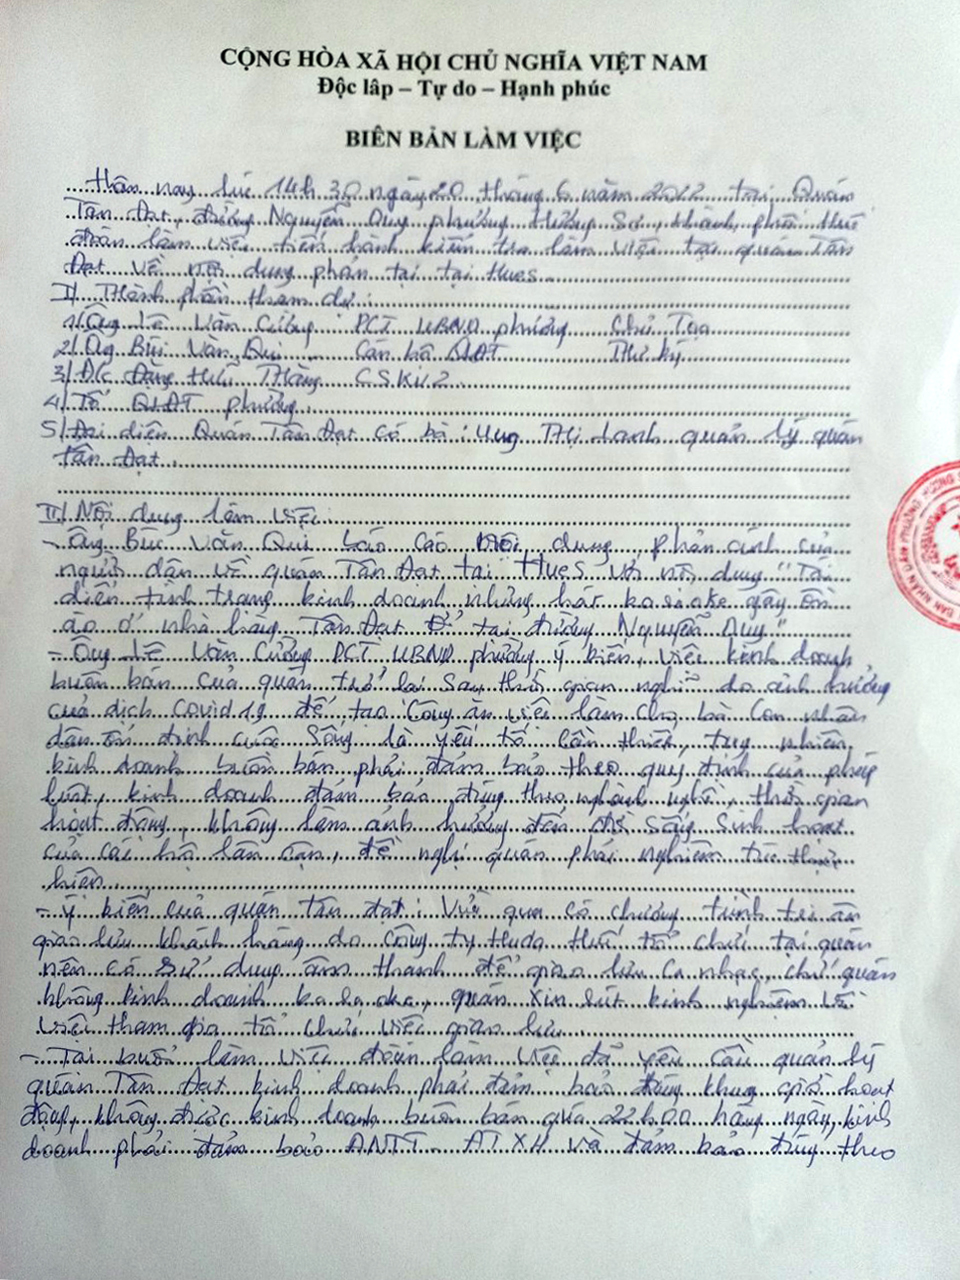 CỘNG HÒA XÃ HỘI CHỦ NGHĨA VIỆT NAM
Độc lâp – Tự do – Hạnh phúc
BIÊN BẢN LÀM VIỆC
Hôm nay lúc 14h 30 ngày 20 tháng 6 năm 2022 tại Quán
Tân Đạt, đường Nguyễn Duy phường Hương Sơ, thành phố Huế
đoàn làm việc tiến hành kiểm tra làm việc tại quán Tân
Đạt về nội dung phản tại tại Hues
I/ Thành phần tham dự:
1/ Ông Lê Văn Cường PCT UBND phường Chủ Tọa
2/ Ông Bùi Văn Qui Cán bộ QLĐT Thư ký
3/ Đ/c Đặng Hữu Thắng CSKV2
4/ Tổ QLĐT phường
5/ Đại diện Quán Tân Đạt có bà: Ung Thị Lanh quản lý quán
Tân Đạt.
II/ Nội dung làm việc:
- Ông Bùi Văn Qui báo cáo nội dung phản ánh của
người dân về quán Tân Đạt tại Hues với nội dung "Tái
diễn tình trạng kinh doanh nhưng hát karaoke gây ồn
ào ở nhà hàng Tân Đạt tại đường Nguyễn Duy"
- Ông Lê Văn Cường PCT UBND phường ý kiến, việc kinh doanh
buôn bán của quán trở lại sau thời gian nghỉ do ảnh hưởng
của dịch Covid 19 để tạo công ăn việc làm cho bà con nhân
dân ổn định cuộc sống là yếu tố cần thiết, tuy nhiên
kinh doanh buôn bán phải đảm bảo theo quy định của pháp
luật, kinh doanh đảm bảo đúng theo nghành nghề, thời gian
hoạt động, không làm ảnh hưởng đến đời sống sinh hoạt
của các hộ lân cận, đề nghị quán phải nghiêm túc thực
hiện.
- Ý kiến của quán tân đạt: Vừa qua có chương trình tri ân
giao lưu khách hàng do công ty Huda Huế tổ chức tại quán
nên có sử dụng âm thanh để giao lưu ca nhạc, chứ quán
không kinh doanh karaoke, quán xin rút kinh nghiệm về
việc tham gia tổ chức việc giao lưu.
- Tại buổi làm việc đoàn làm việc đã yêu cầu quản lý
quán Tân Đạt kinh doanh phải đảm bảo đúng khung giờ hoạt
động, không được kinh doanh buôn bán quá 22h00 hằng ngày, kinh
doanh phải đảm bảo ANTT ATXH và đảm bảo đúng theo